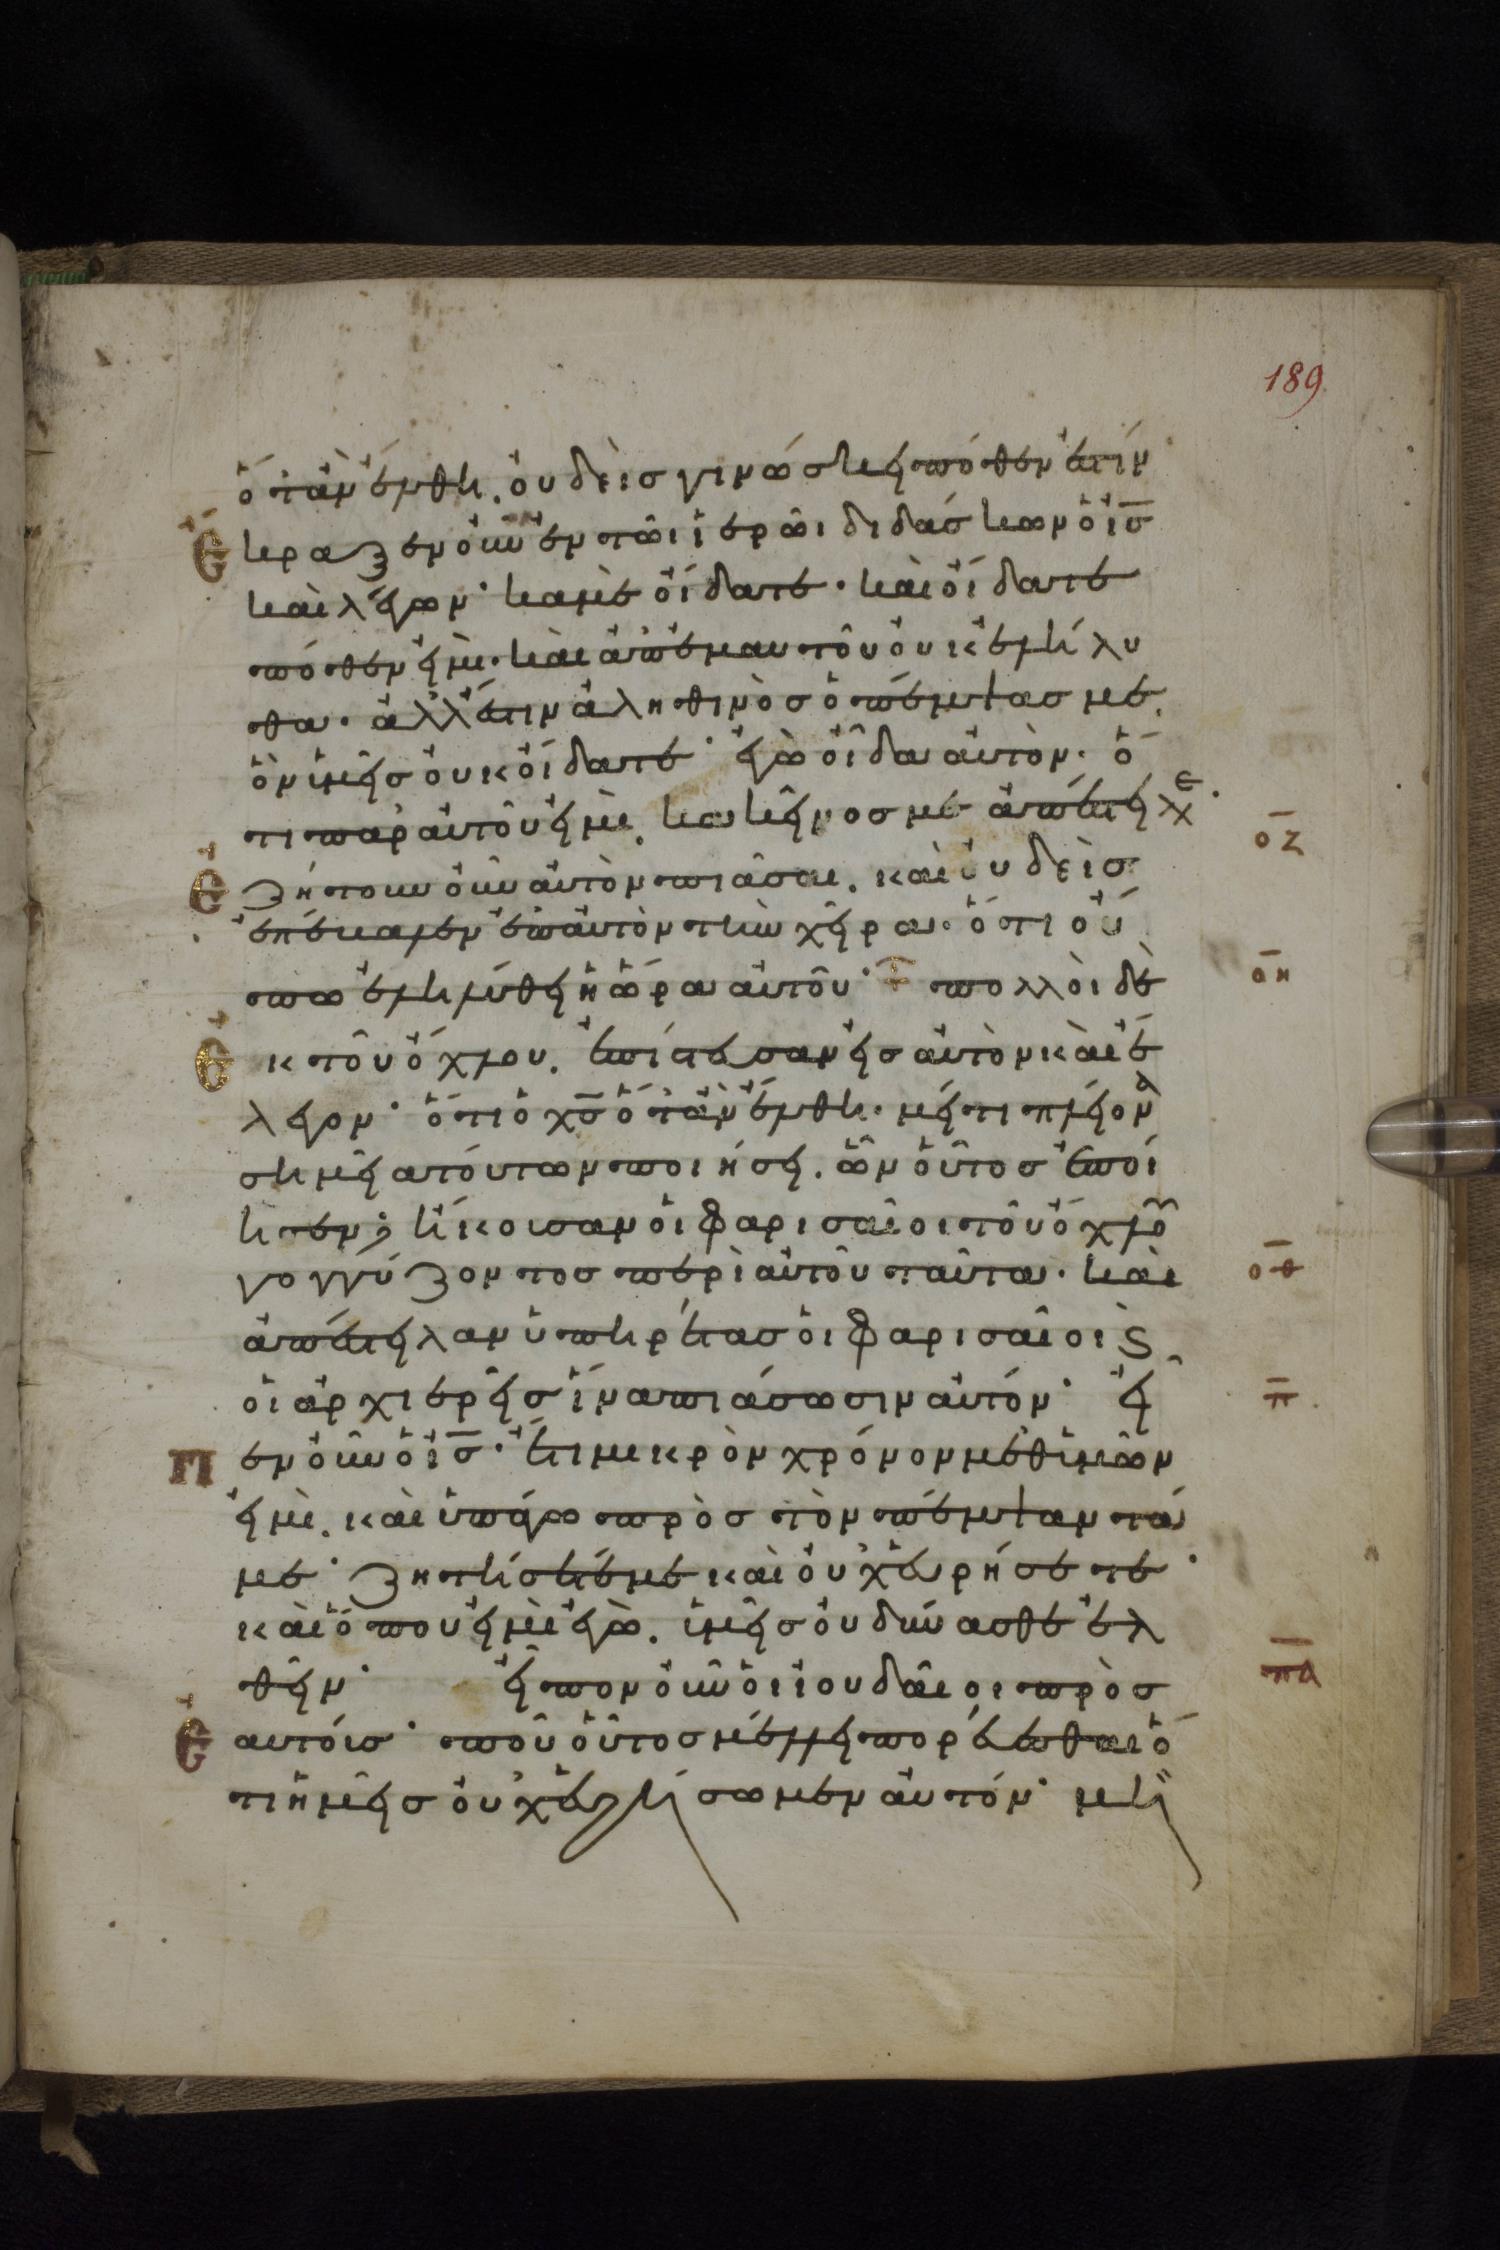 189
ὅταν ἔρχηται. οὐδεὶς γινώσκει πόθεν ἐστίν·
Ἔκραξεν οὖν ἐν τῶι ἱερῶι διδάσκων ὁ ις̅
καὶ λέγων· καμὲ οἴδατε· καὶ οἴδατε
πόθεν εἰμί· καὶ ἀπ' ἐμαυτοῦ οὐκ ἐλήλυ
θα· ἀλλ' ἔστιν ἀληθινὸς ὁ πέμψας με.
ὃν ὑμεῖς οὐκ οἴδατε· ἐγὼ οἶδα αὐτὸν· ὅ
τι παρ' αὐτοῦ εἰμί. κακεῖνός με ἀπέστειλε·
οζ
Ἐζήτουν οὖν αὐτὸν πιᾶσαι. καὶ οὐδεὶς
ἐπέβαλεν ἐπ' αὐτὸν τὴν χεῖρα· ὅτι οὔ
πω ἐληλύθει ἡ ὥρα αὐτοῦ· πολλοὶ δὲ
οη
Ἐκ τοῦ ὄχλου. ἐπίστευσαν εἰς αὐτὸν καὶ ἔ
λεγον· ὅτι ὁ χς̅ ὅταν ἔλθη· μήτι πλείονα
σημεῖα τούτων ποιήσει. ὧν οὗτος ἐποί
ησεν; ἤκουσαν οἱ φαρισαῖοι τοῦ ὄχλου
γογγύζοντος περὶ αὐτοῦ ταῦτα· καὶ
οθ
ἀπέστειλαν ὑπηρέτας οἱ φαρισαῖοι ϛ
οἱ ἀρχιερεῖς ἵνα πιάσωσιν αὐτόν· εἶ
π
πεν οὖν ὁ ις̅· ἔτι μικρὸν χρόνον μεθ' ὑμῶν
εἰμί. καὶ ὑπάγω πρὸς τὸν πέμψαντά
με· ζητήσετέ με καὶ οὐχ εὑρήσετε·
καὶ ὅπου εἰμὶ ἐγὼ. ὑμεῖς οὐ δύνασθε ἐλ
θεῖν· εἶπον οὖν οἱ ἰουδαῖοι πρὸς
πα
Ἑαυτούς· ποῦ οὗτος μέλλει πορεύεσθαι ὅ
τι ἡμεῖς οὐχ εὑρήσωμεν αὐτόν· μὴ